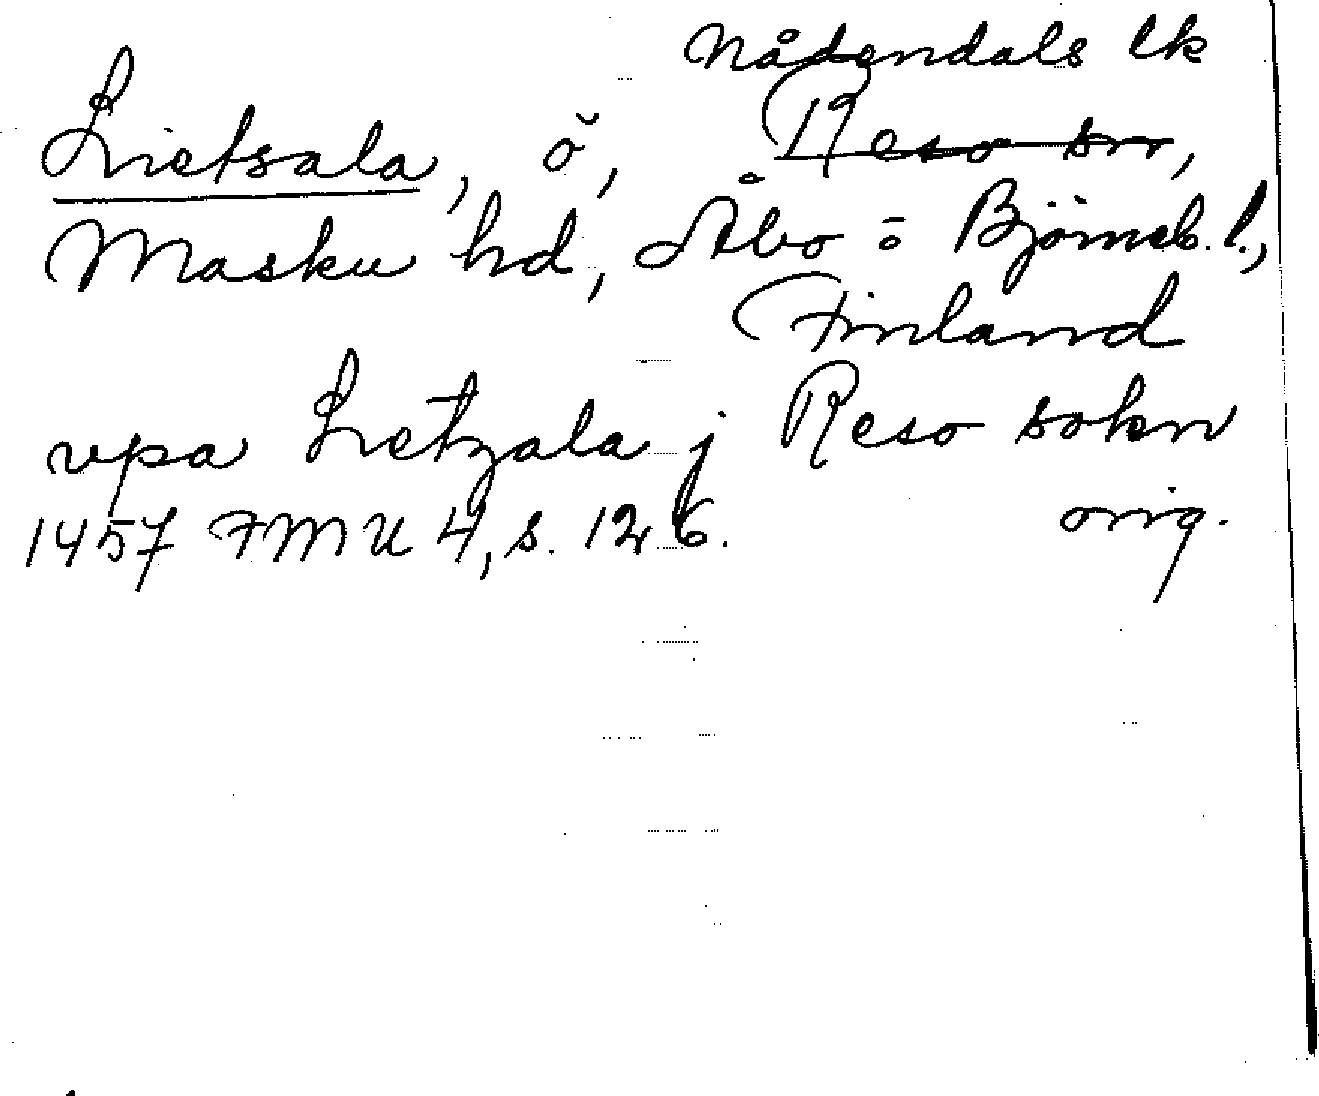 Nådendals lk
Lietsala, ö, Reso sn,
Masku hd, Åbo o Björneb. l.,
Finland
vpa Lietzala j Reso sokn
1457 FMU 4, s. 126. orig.